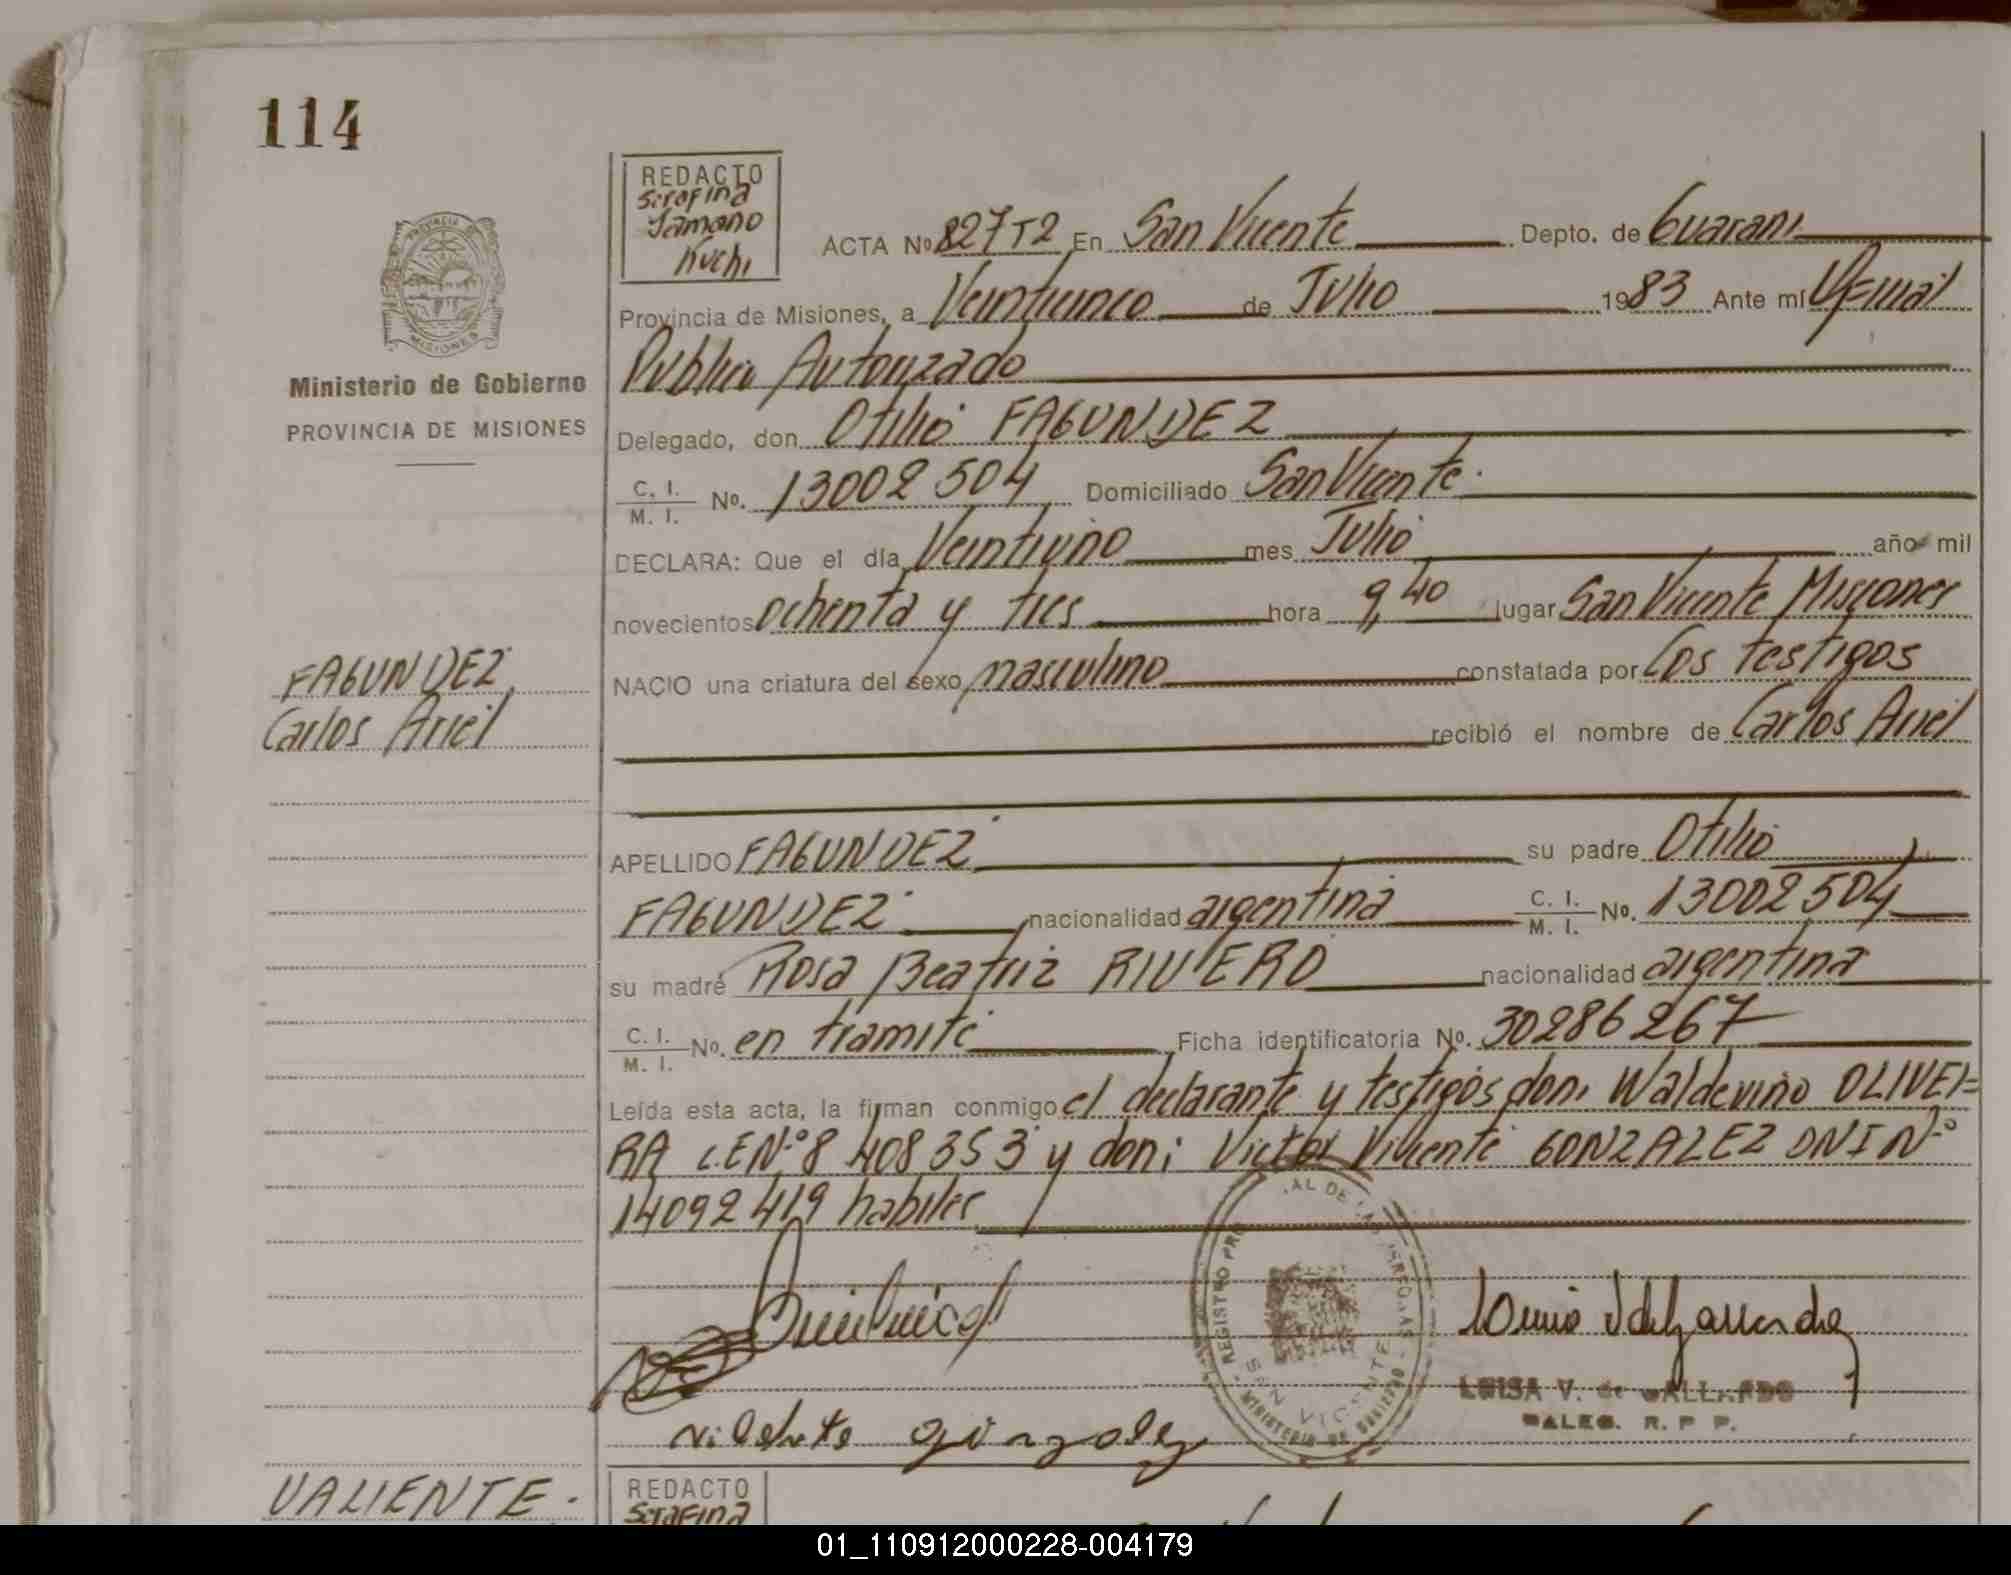 114
REDACTO
Serafina
Tamano
Kuchi
ACTA Nº 827T2 En San Vicente Depto. de Guarani
Provincia de Misiones, a Veinticinco de Julio 1983 Ante mí Oficial
Público Autorizado
Ministerio de Gobierno
PROVINCIA DE MISIONES
Delegado, don Otilio FAGUNDEZ
C. I.
M. I. Nº. 13002504 Domiciliado San Vicente
DECLARA: Que el día Veintiuno mes Julio año mil
novecientos ochenta y tres hora 9,40 lugar San Vicente Misiones
FAGUNDEZ
Carlos Ariel
NACIO una criatura del sexo masculino constatada por Los testigos
recibió el nombre de Carlos Ariel
APELLIDO FAGUNDEZ su padre Otilio
FAGUNDEZ nacionalidad argentina C. I.
M. I. Nº. 13002504
su madre Rosa Beatriz RIVERO nacionalidad argentina
C. I.
M. I. Nº. en tramite Ficha identificatoria Nº. 30286267
Leída esta acta, la firman conmigo el declarante y testigos don: Waldevino OLIVEI=
RA L.E Nº 8408353 y don: Victor Vicente GONZALEZ DNI Nº
14092419 habiles
REGISTRO PRO AL DE LAS PERSONAS
SAN VICENTE
MINISTERIO DE GOBIERNO
LUISA V. de GALLARDO
DALEG. R. P P.
VALIENTE.
REDACTO
Serafina
01_110912000228-004179